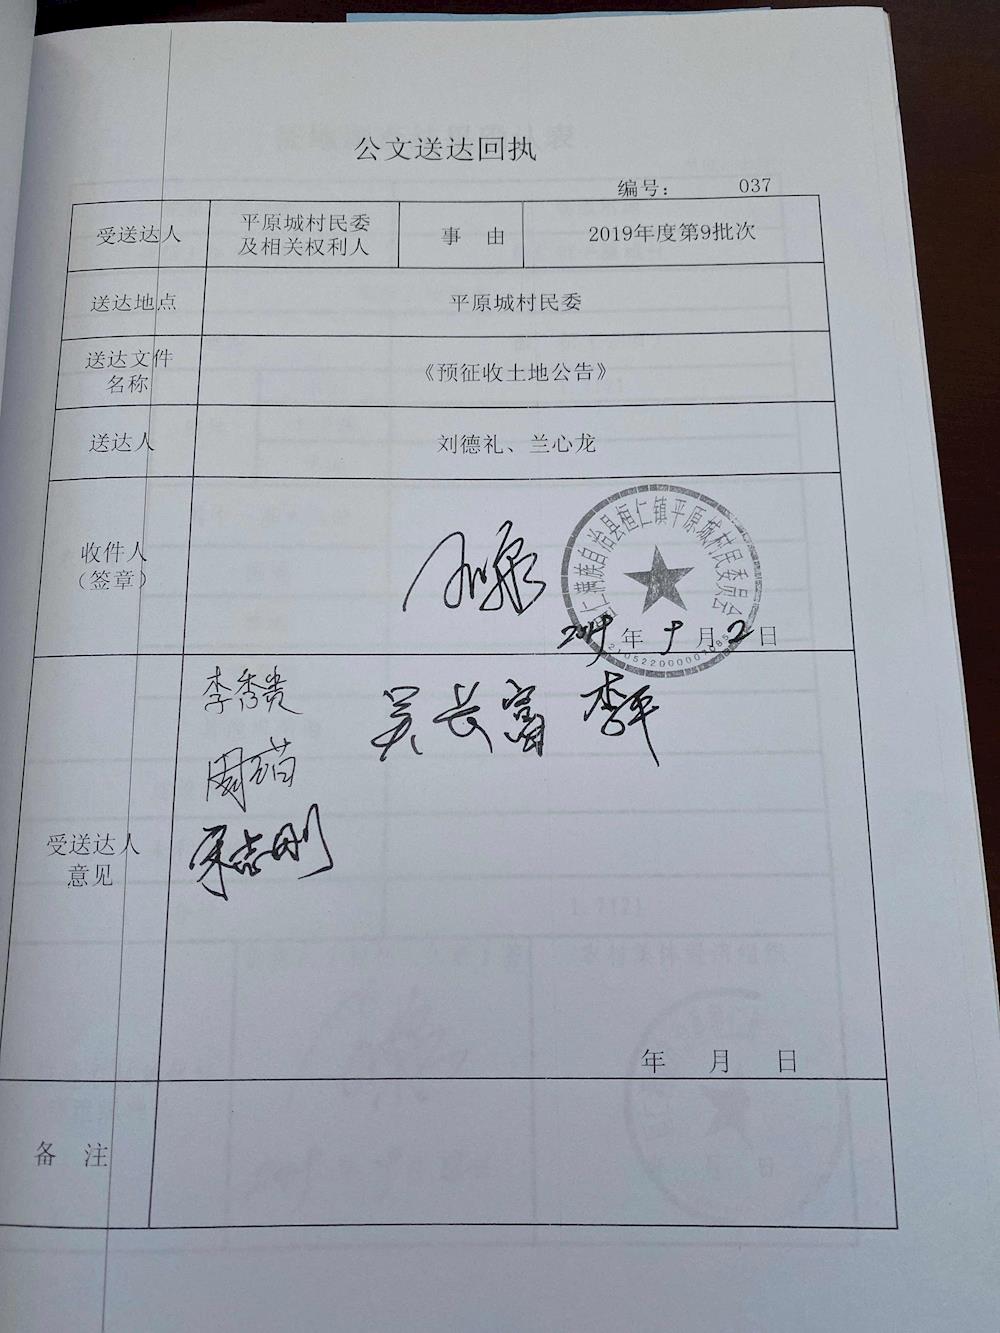 公文送达回执
编号: 037
受送达人 平原城村民委 事 由 2019年度第9批次
及相关权利人
送达地点 平原城村民委
送达文件 《预征收土地公告》
名称
送达人 刘德礼、兰心龙
收件人
(签章)
仁满族自治县桓仁镇平原城村民委员会
2019年9月2日
李秀贵 吴长富 李平
周
宋志刚
受送达人
意见
年 月 日
备 注